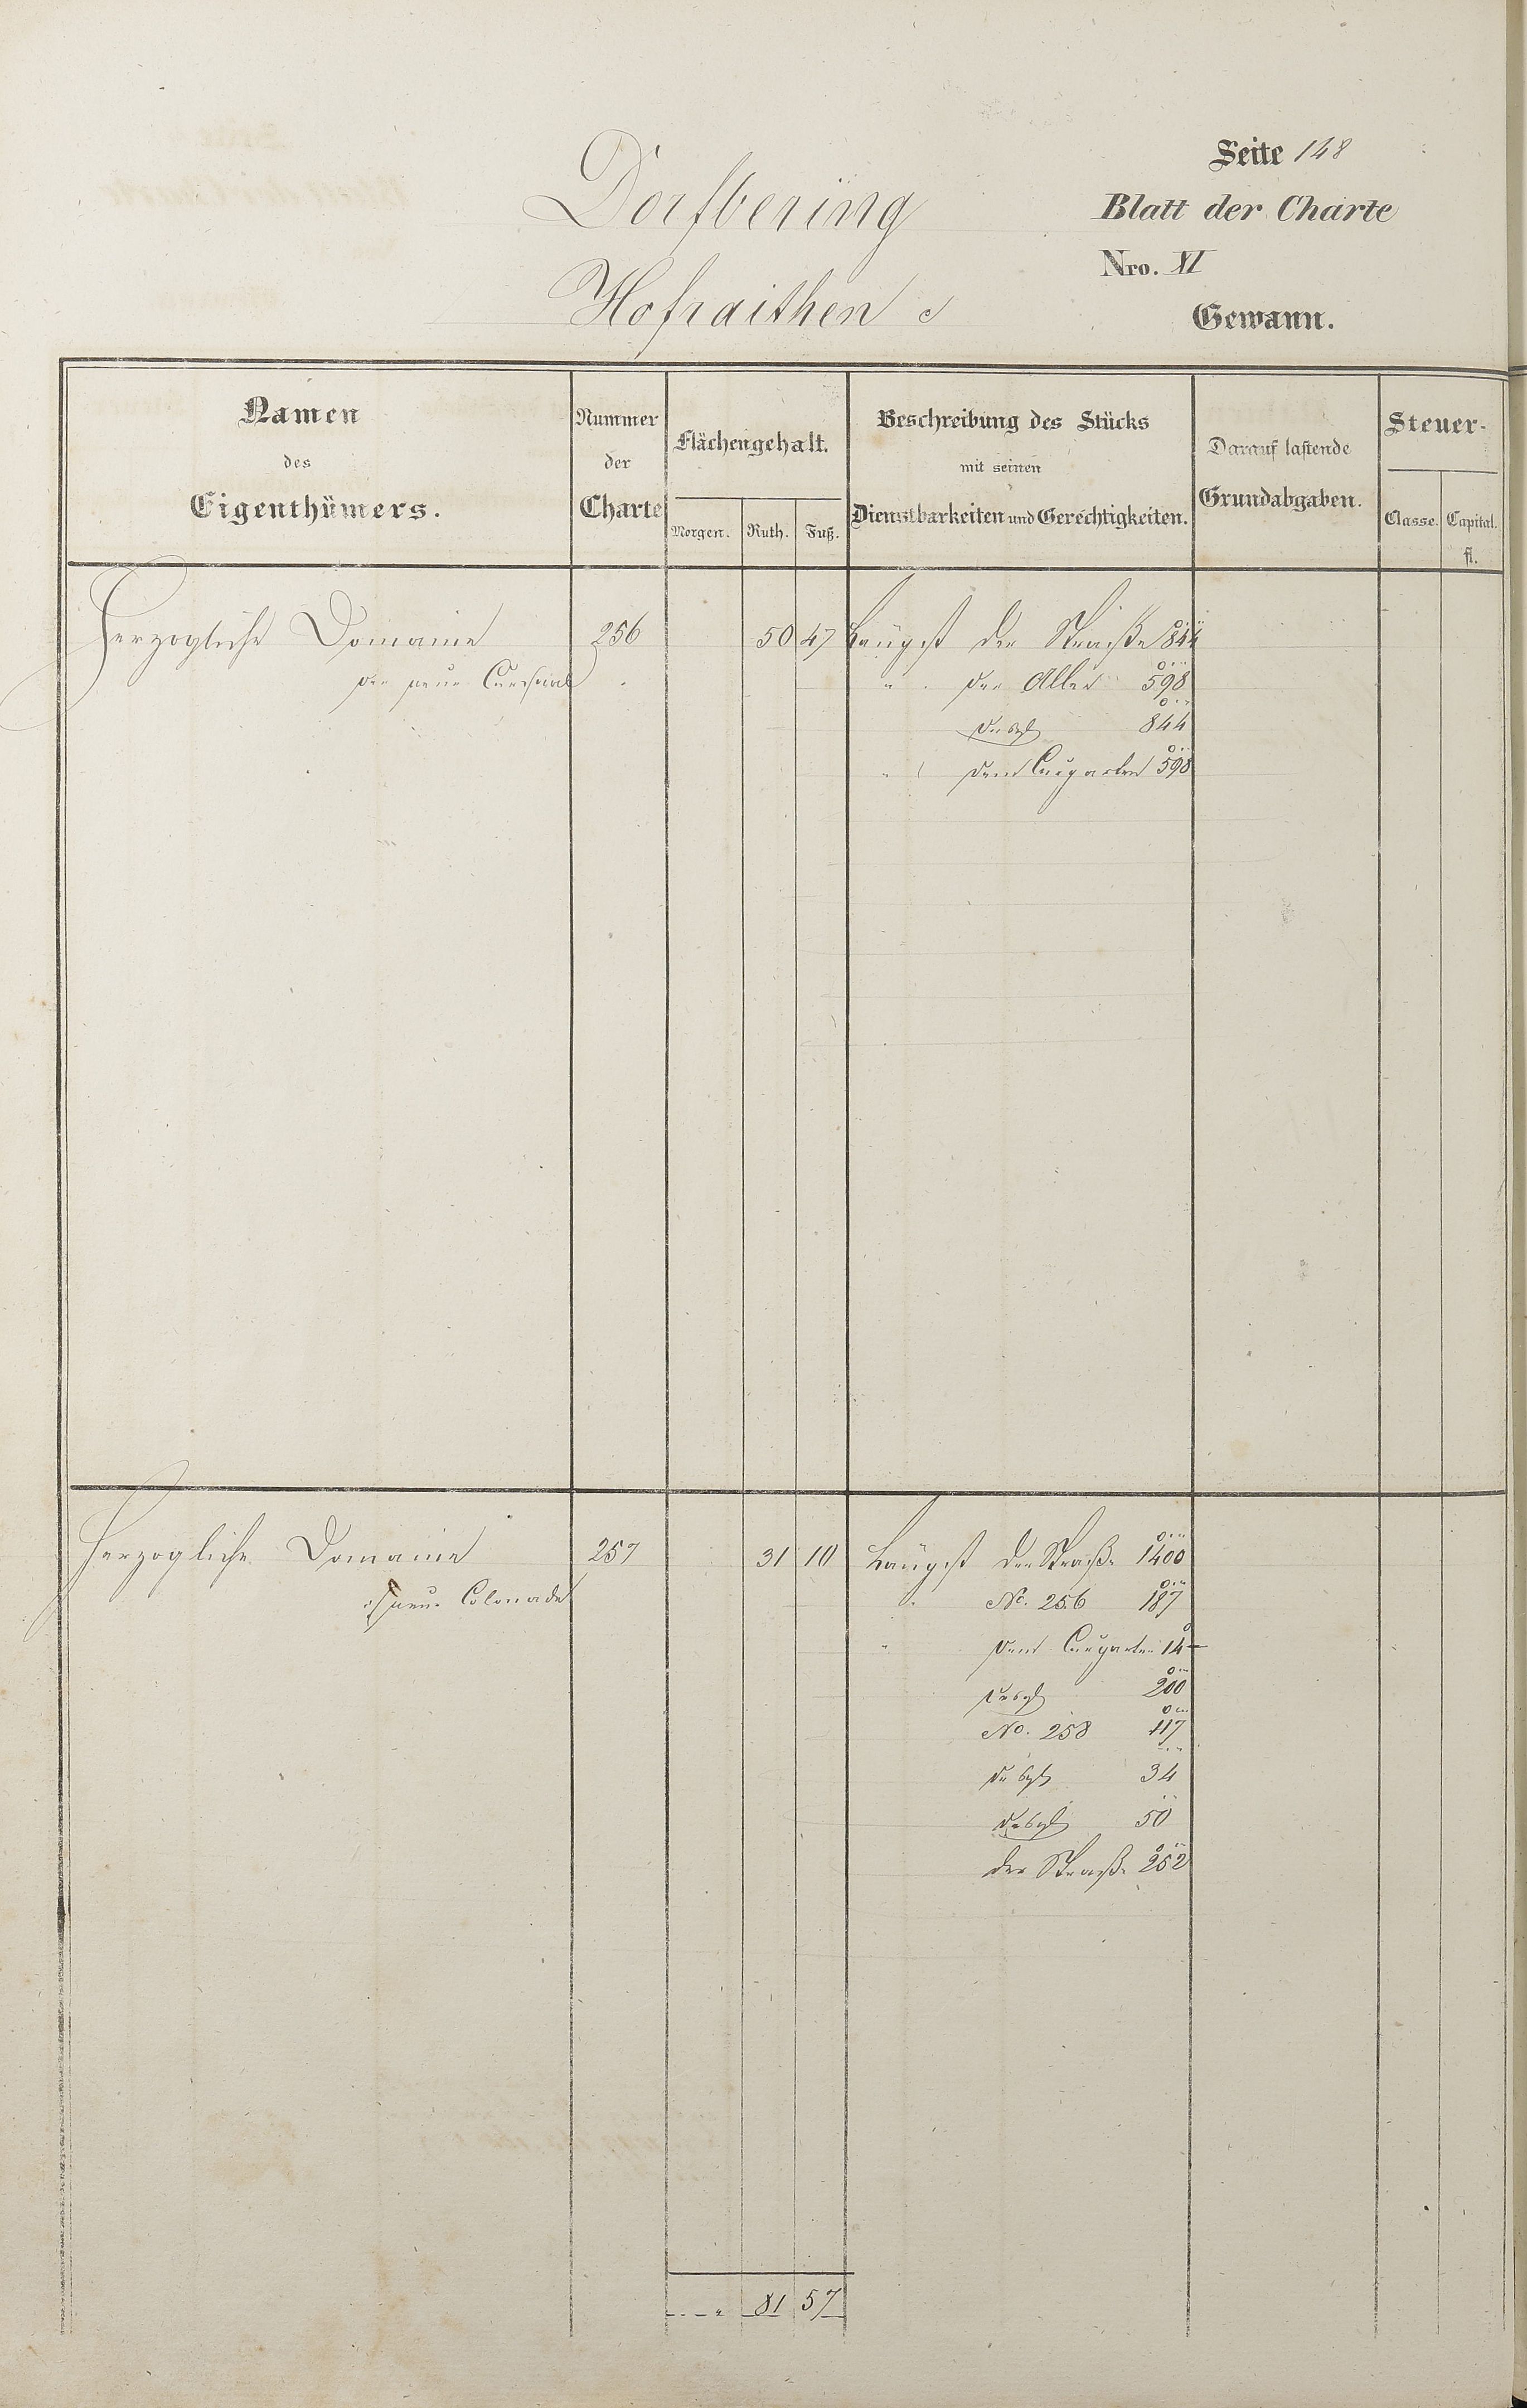 Seite 148
Dorfbering
Blatt der Charte
Nro. XI
Hofraithen
Gewann.
Namen des Eigenthümers.
Nummer der Charte
Flächengehalt.
Morgen. Ruth. Fuß.
Beschreibung des Stücks mit seinen Dienstbarkeiten und Gerechtigkeiten.
Darauf lastende Grundabgaben.
Steuer-
Classe. Capital. fl.
Herzogliche Domaine 256 50 47 Längst der Straße 844
der neue Cursaal " der Allee 598
desgl 844
" dem Curgarten 598
Herzogliche Domaine 257 31 10 Längst der Straße 1400
neue Colonade " No. 256 187
" dem Curgarten 14
desgl 200
No. 258 117
desgl 34
desgl 50
der Straße 252
81 57